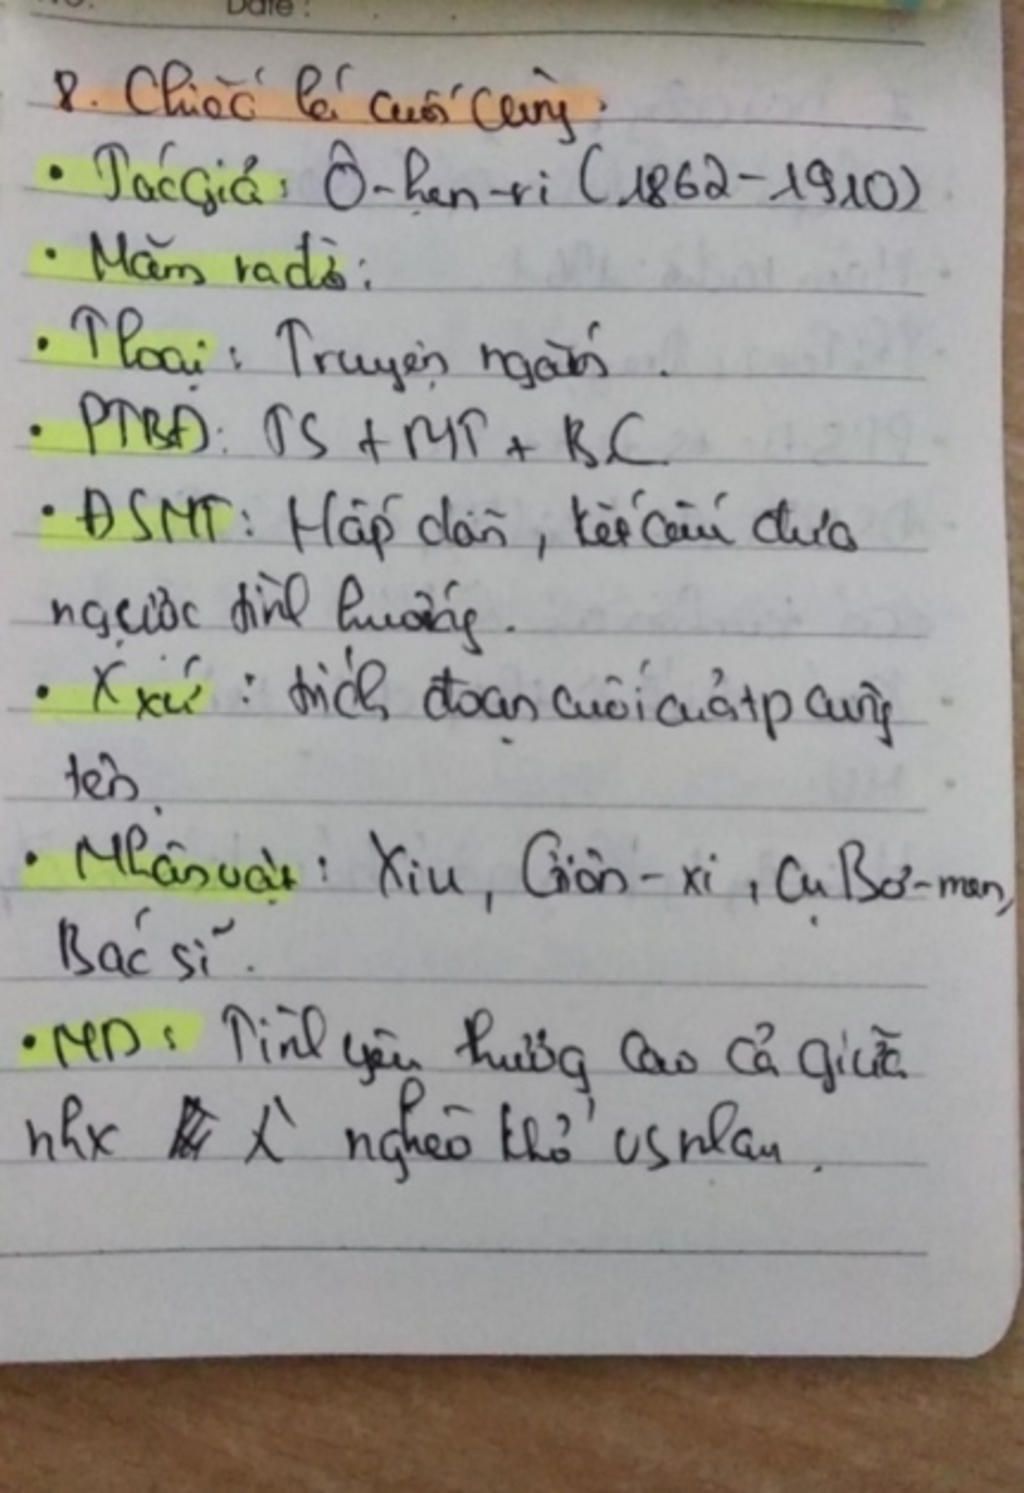 Date:
8. Chiếc lá cuối cùng.
• Tác giả: Ô-hen-ri (1862-1910)
• Năm ra đời:
• Thoại: Truyện ngắn.
• PTBĐ: TS + MT + BC
• ĐSNT: Hấp dẫn, kết cấu đảo
ngược tình huống.
• Xxứ: trích đoạn cuối của tp cùng
tên.
• Nhân vật: Xiu, Giôn-xi, Cụ Bơ-men,
Bác sĩ.
• ND: Tình yêu thương cao cả giữa
nhx nghèo khổ vs nhau.